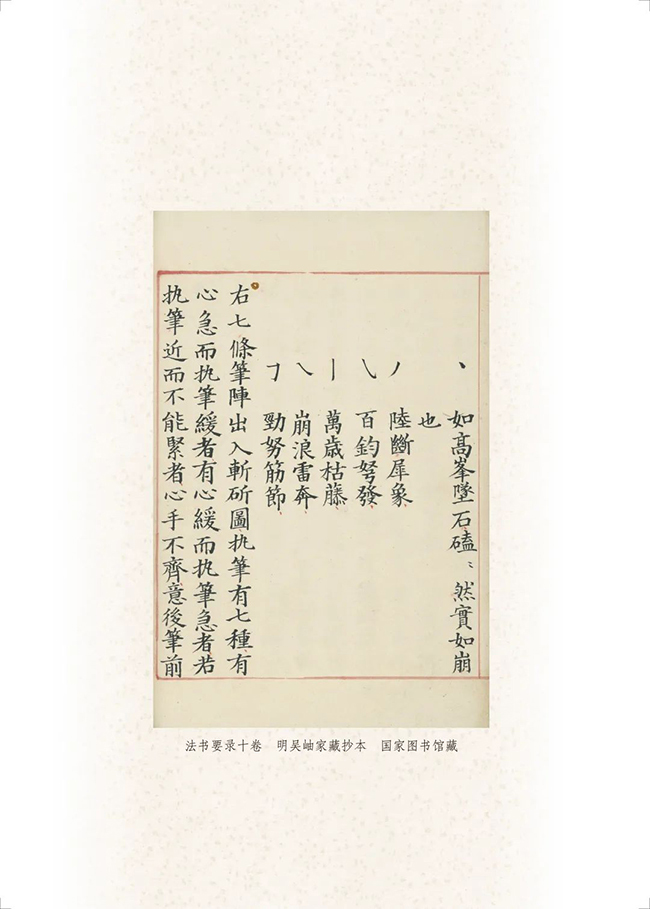 丶 如高峯墜石磕〻然實如崩
也
丿 陸斷犀象
㇂ 百鈞弩發
丨 萬歲枯藤
㇏ 崩浪雷奔
㇆ 勁努筋節
右七條筆陣出入斬斫圖执筆有七種有
心急而执筆緩者有心緩而执筆急者若
执筆近而不能緊者心手不齊意後筆前
法书要录十卷 明吴岫家藏抄本 国家图书馆藏